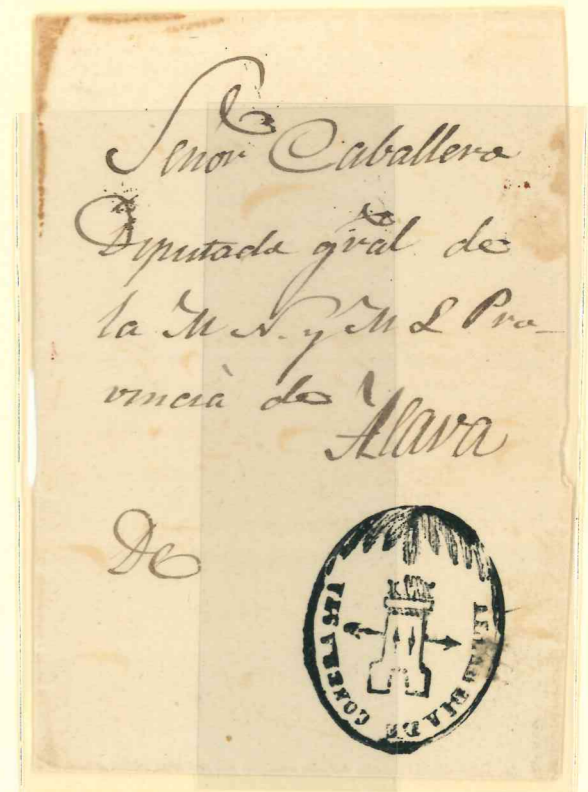 Señor Caballero
Diputado gral de
la M N. y M L Pro-
vincià de
Alava
De